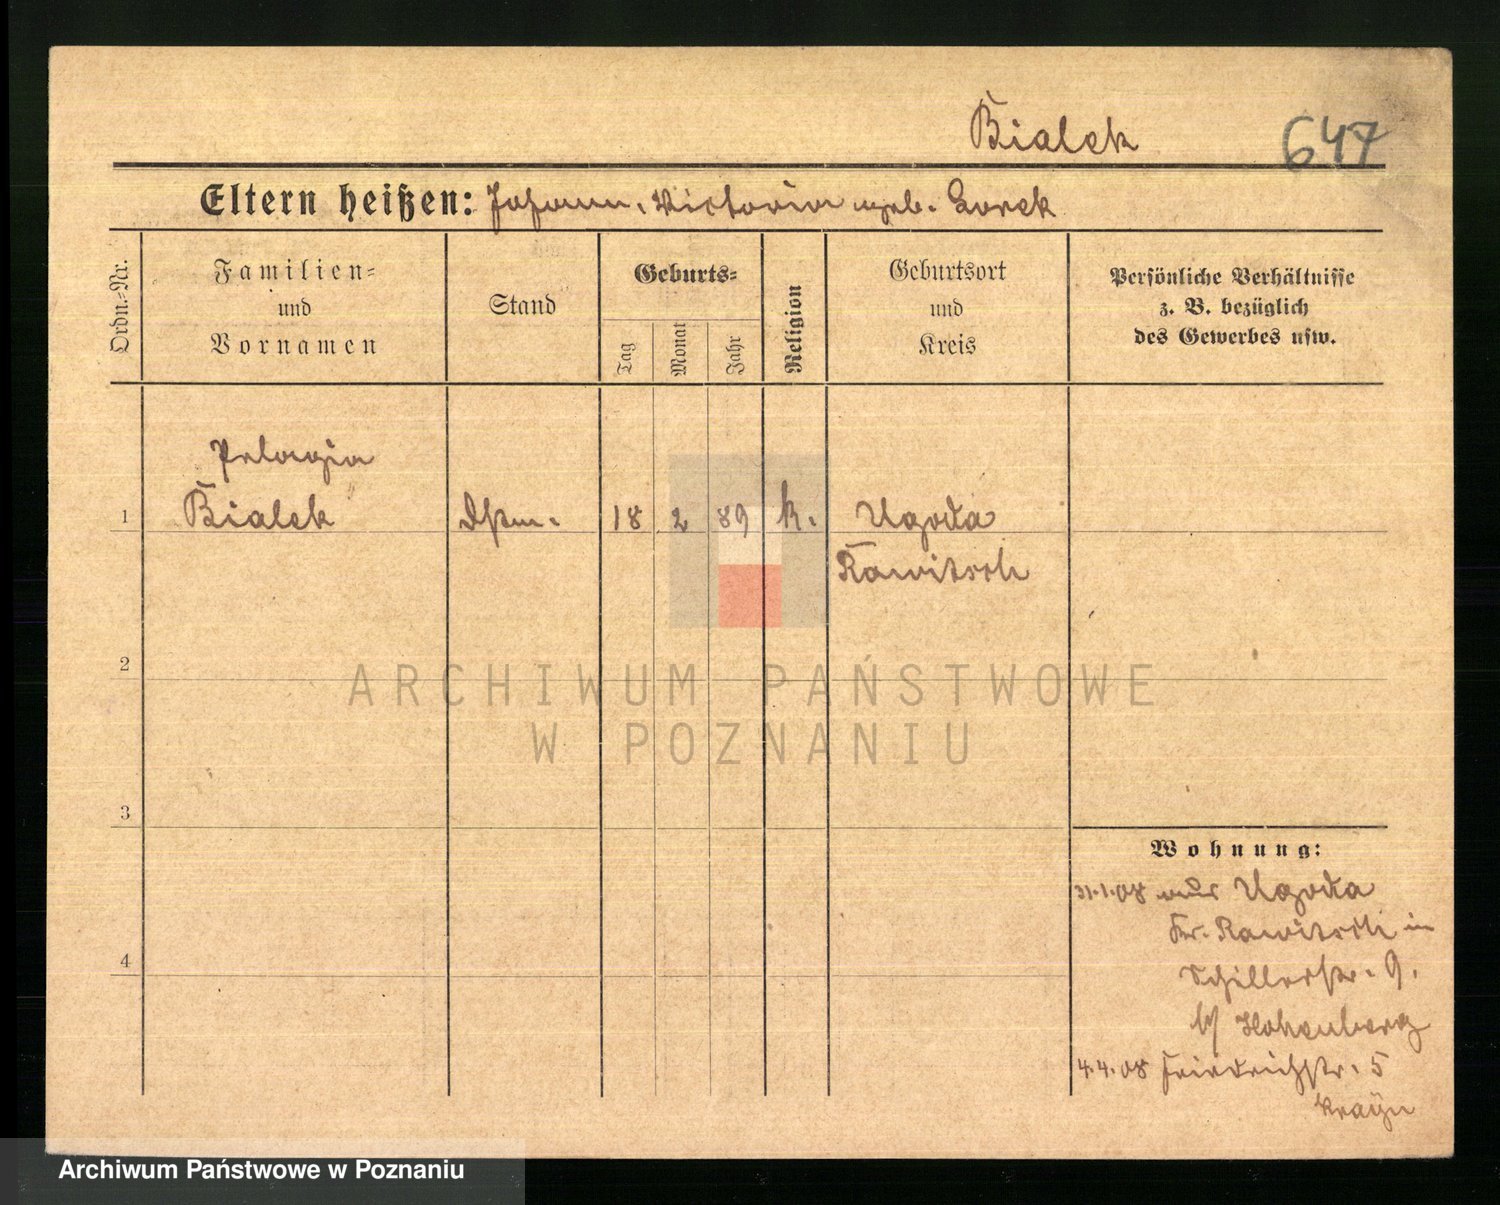 Bialek 647
Eltern heißen: Johann, Victoria geb. Gorek
Ordn.-Nr.
Familien-
und
Vornamen
Stand
Geburts-
Tag
Monat
Jahr
Religion
Geburtsort
und
Kreis
Persönliche Verhältnisse
z. B. bezüglich
des Gewerbes usw.
Pelagia
1 Bialek Dstm. 18 2 89 k. Ugoda
Rawitsch
2
ARCHIWUM PAŃSTWOWE
W POZNANIU
3
Wohnung:
31.1.08 aus Ugoda
Kr. Rawitsch in
4
Schillerstr. 9.
b/ Hohenberg
4.4.08 Friedrichstr. 5
Archiwum Państwowe w Poznaniu